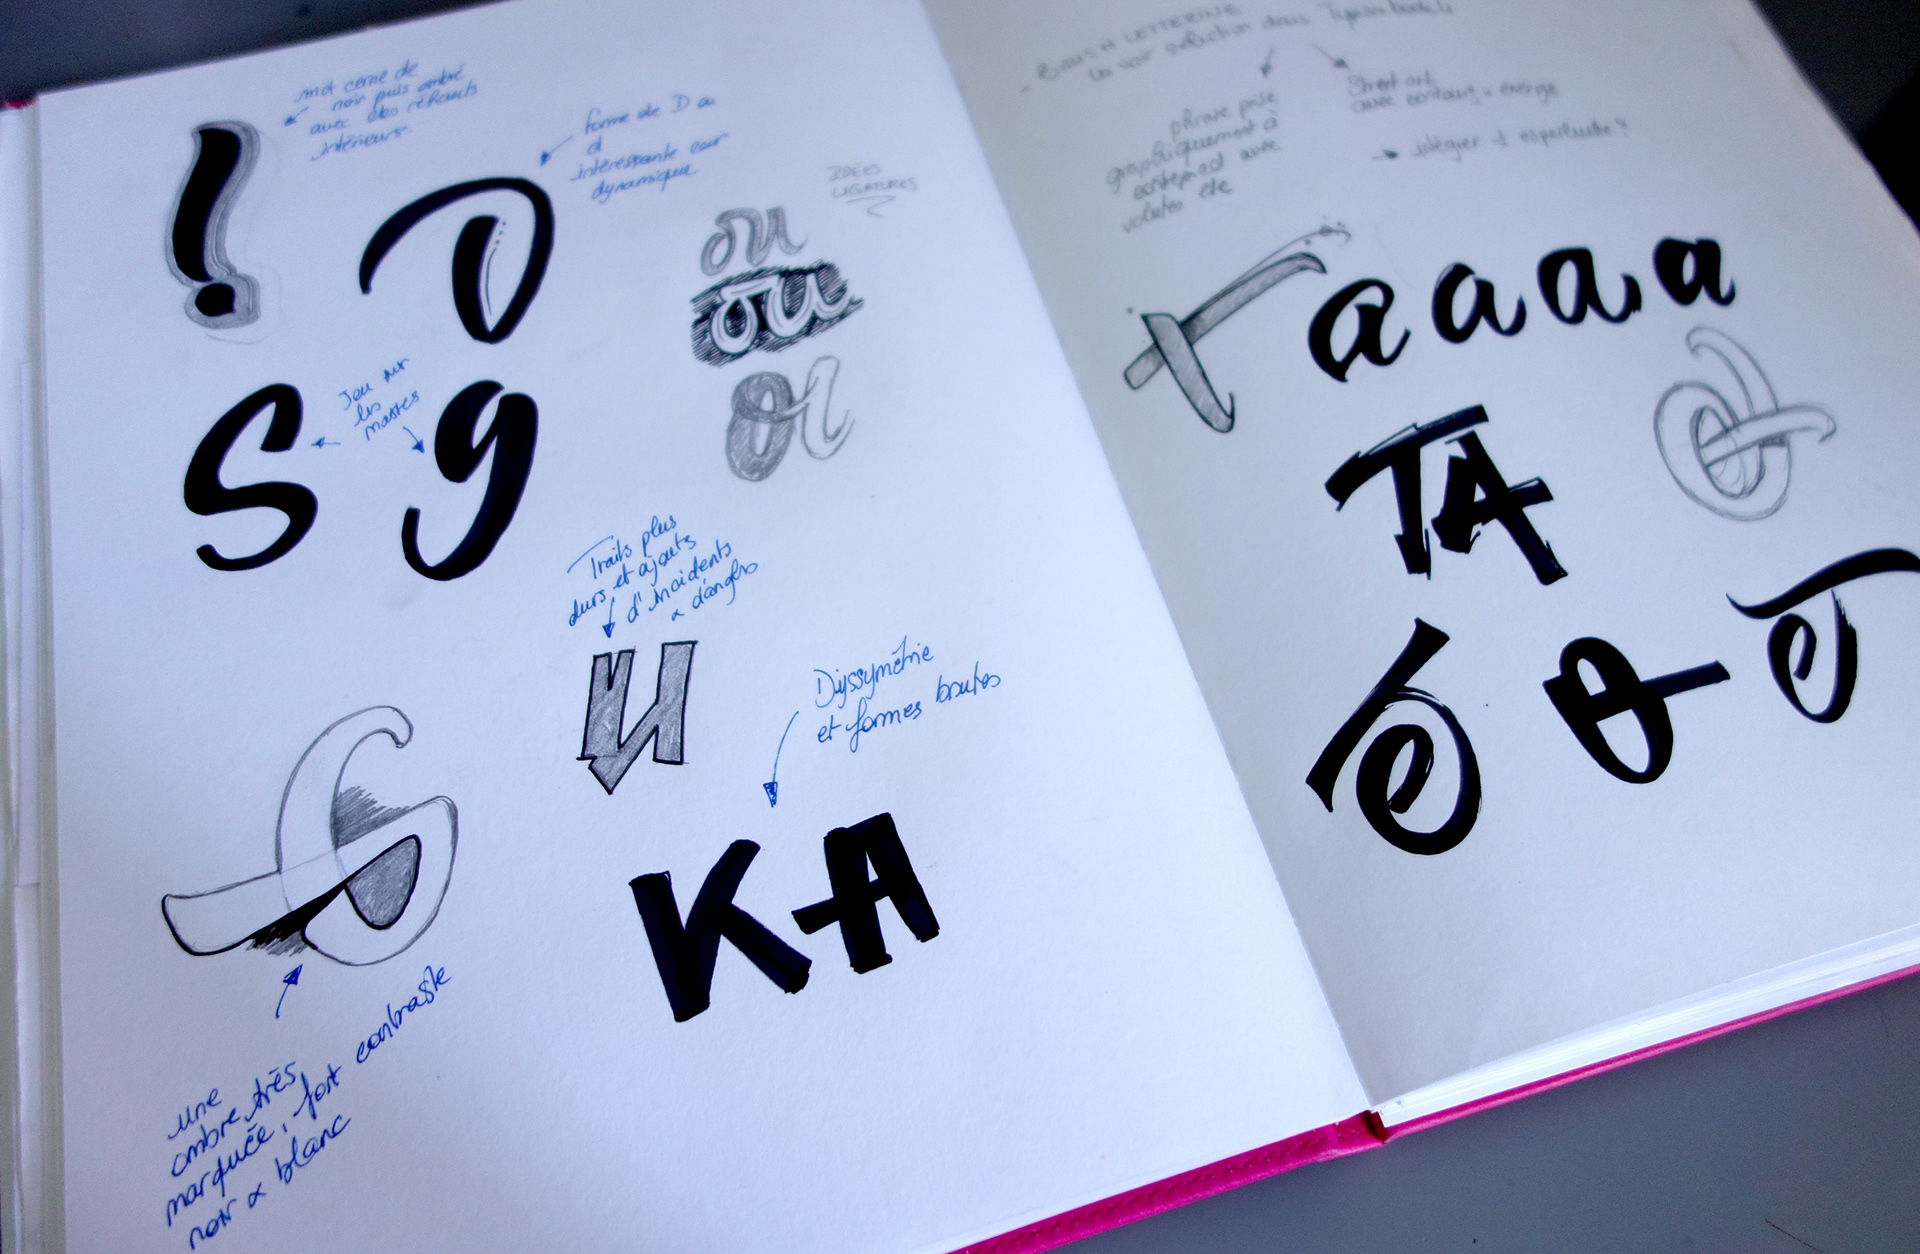 mot cerné de
noir puis ombré
avec des réhauts
intérieurs.
!
forme de D ou
d
intéressante car
dynamique
D
IDÉES
LIGATURES
ou
ou
Jeu sur
les
masses
S g
Traits plus
durs et ajouts
d'incidents
& d'angles
u
Dyssymétrie
et formes brutes
KA
une
ombre très
marquée, fort contraste
noir & blanc
- BRUSH LETTERING
voir sélection dans
phrase prise
graphiquement à
contrepied avec
volutes etc
Street art
avec contours & énergie
→ intégrer 1 esperluette?
T a a a a
TA